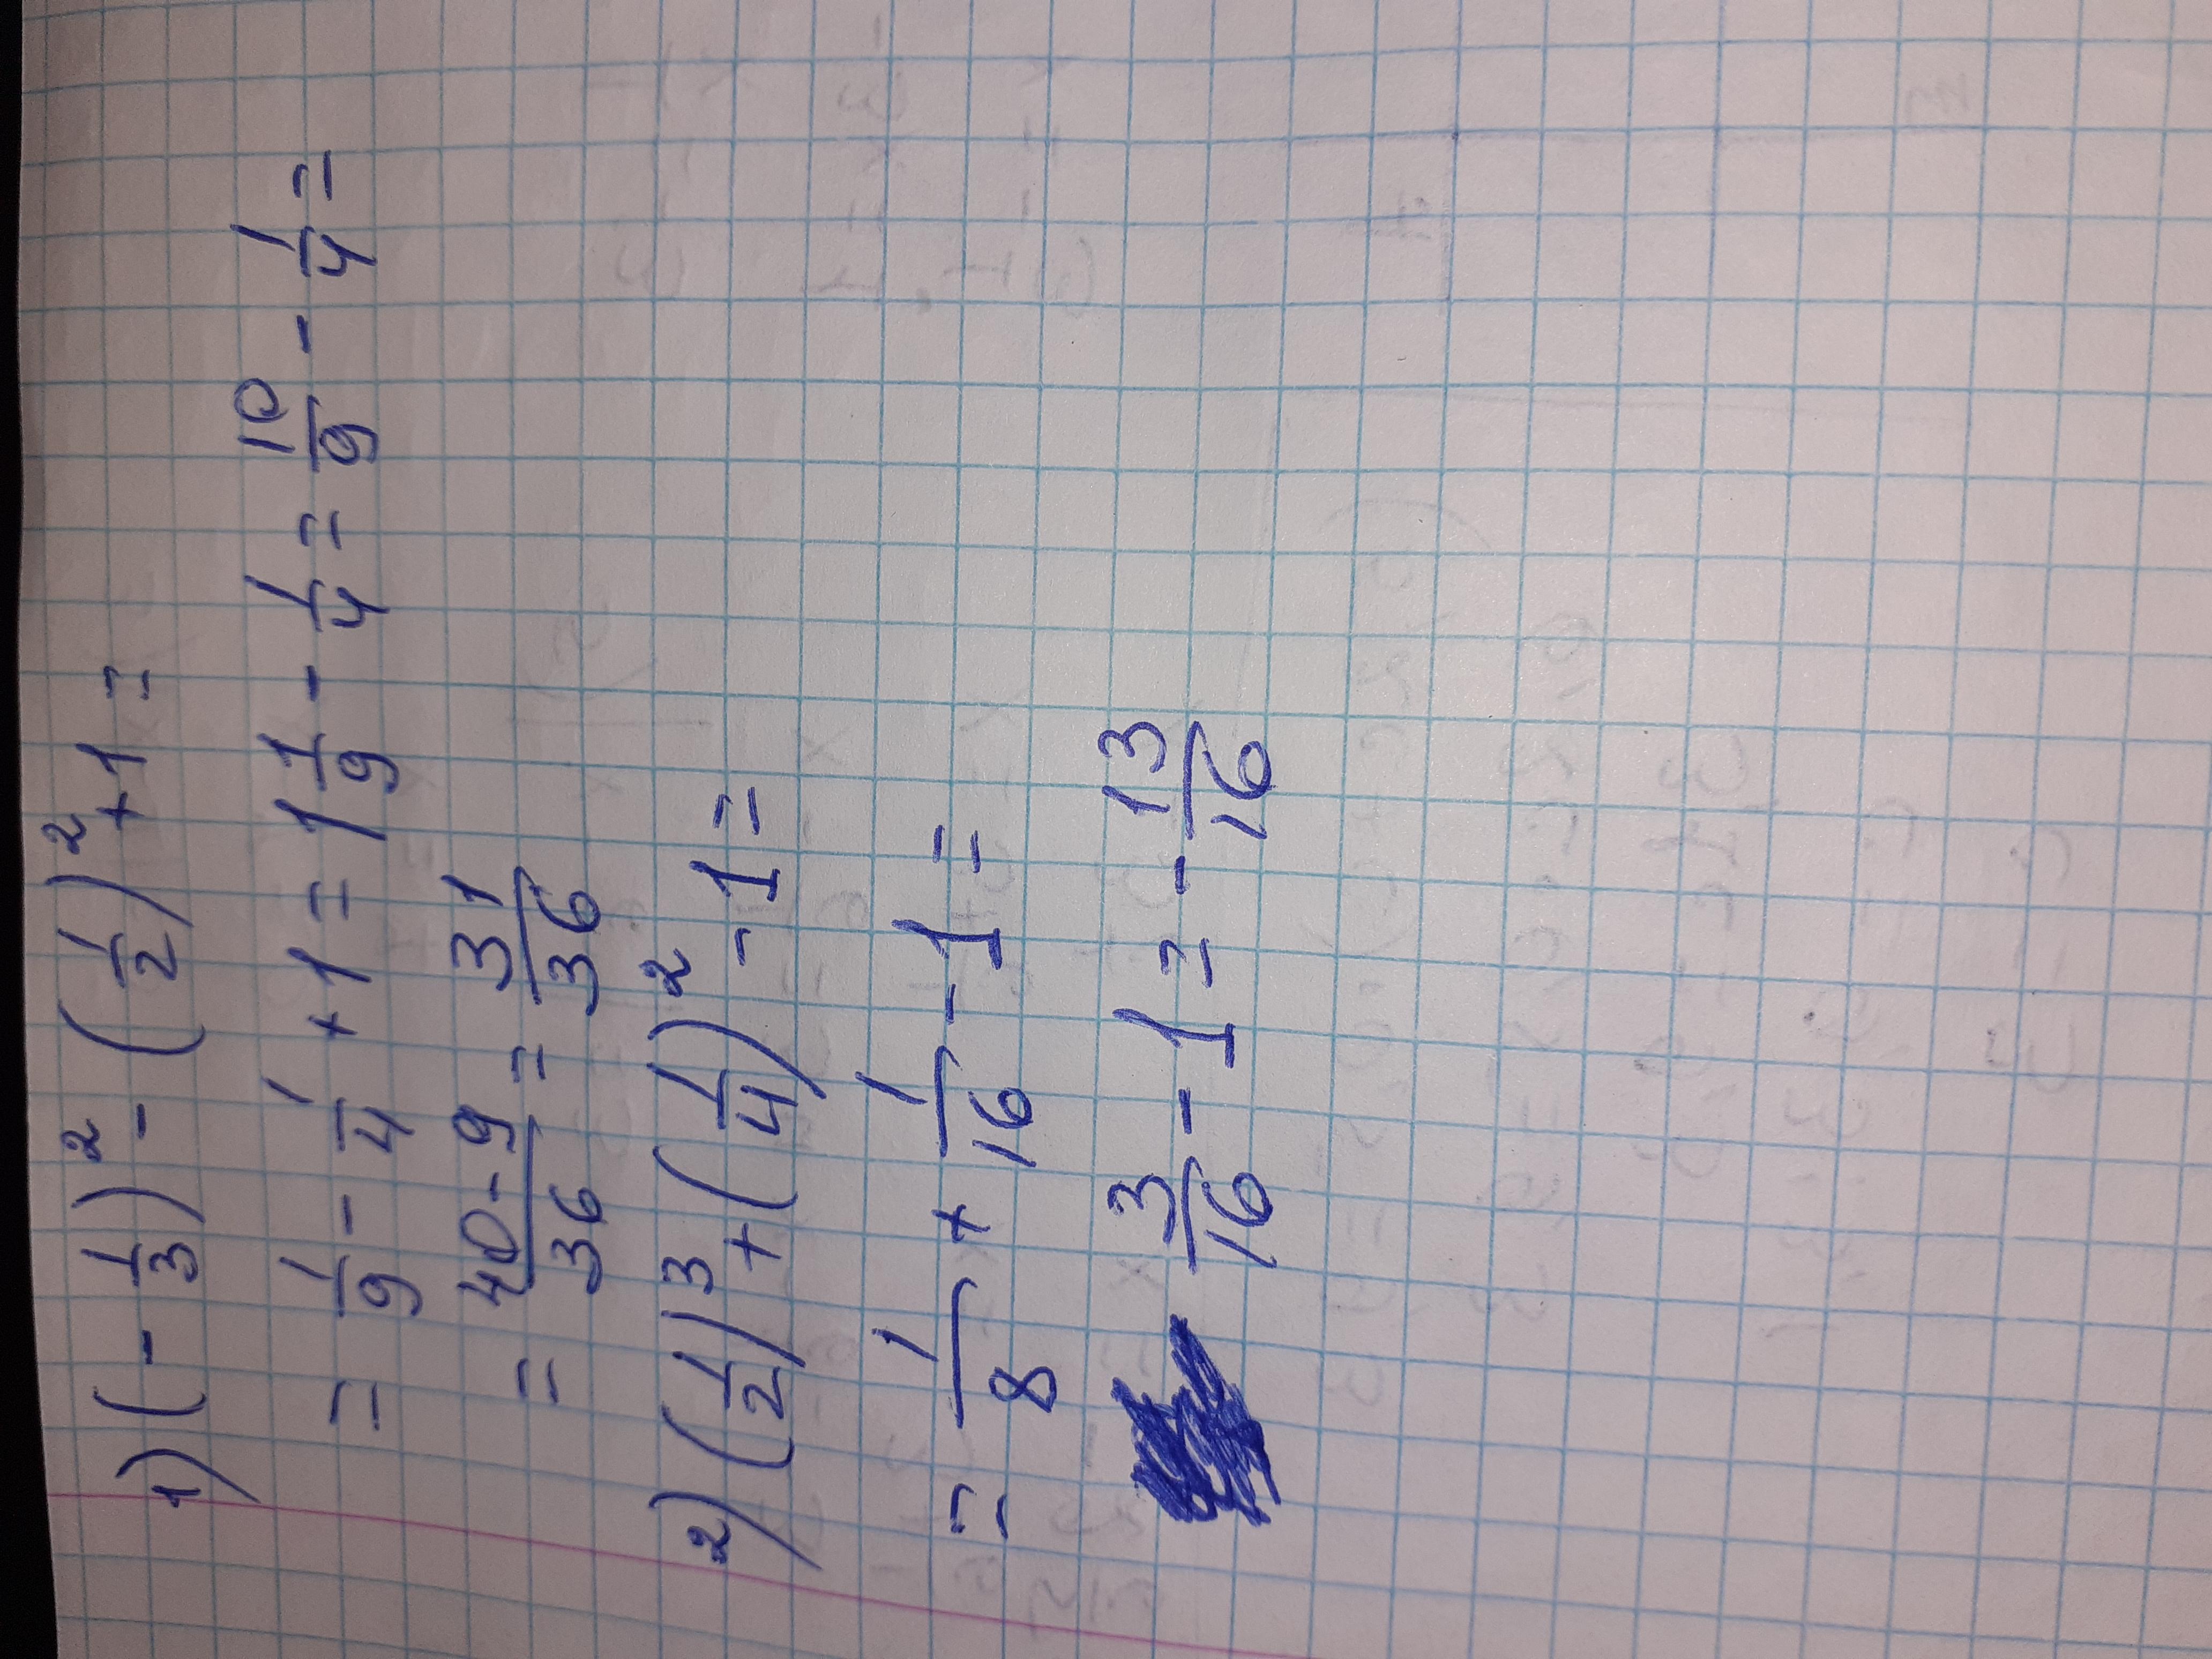 1) (- 1/3)² - (1/2)² + 1 =
= 1/9 - 1/4 + 1 = 1 1/9 - 1/4 = 10/9 - 1/4 =
= 40-9/36 = 31/36
2) (1/2)³ + (1/4)² - 1 =
= 1/8 + 1/16 - 1 =
3/16 - 1 = - 13/16